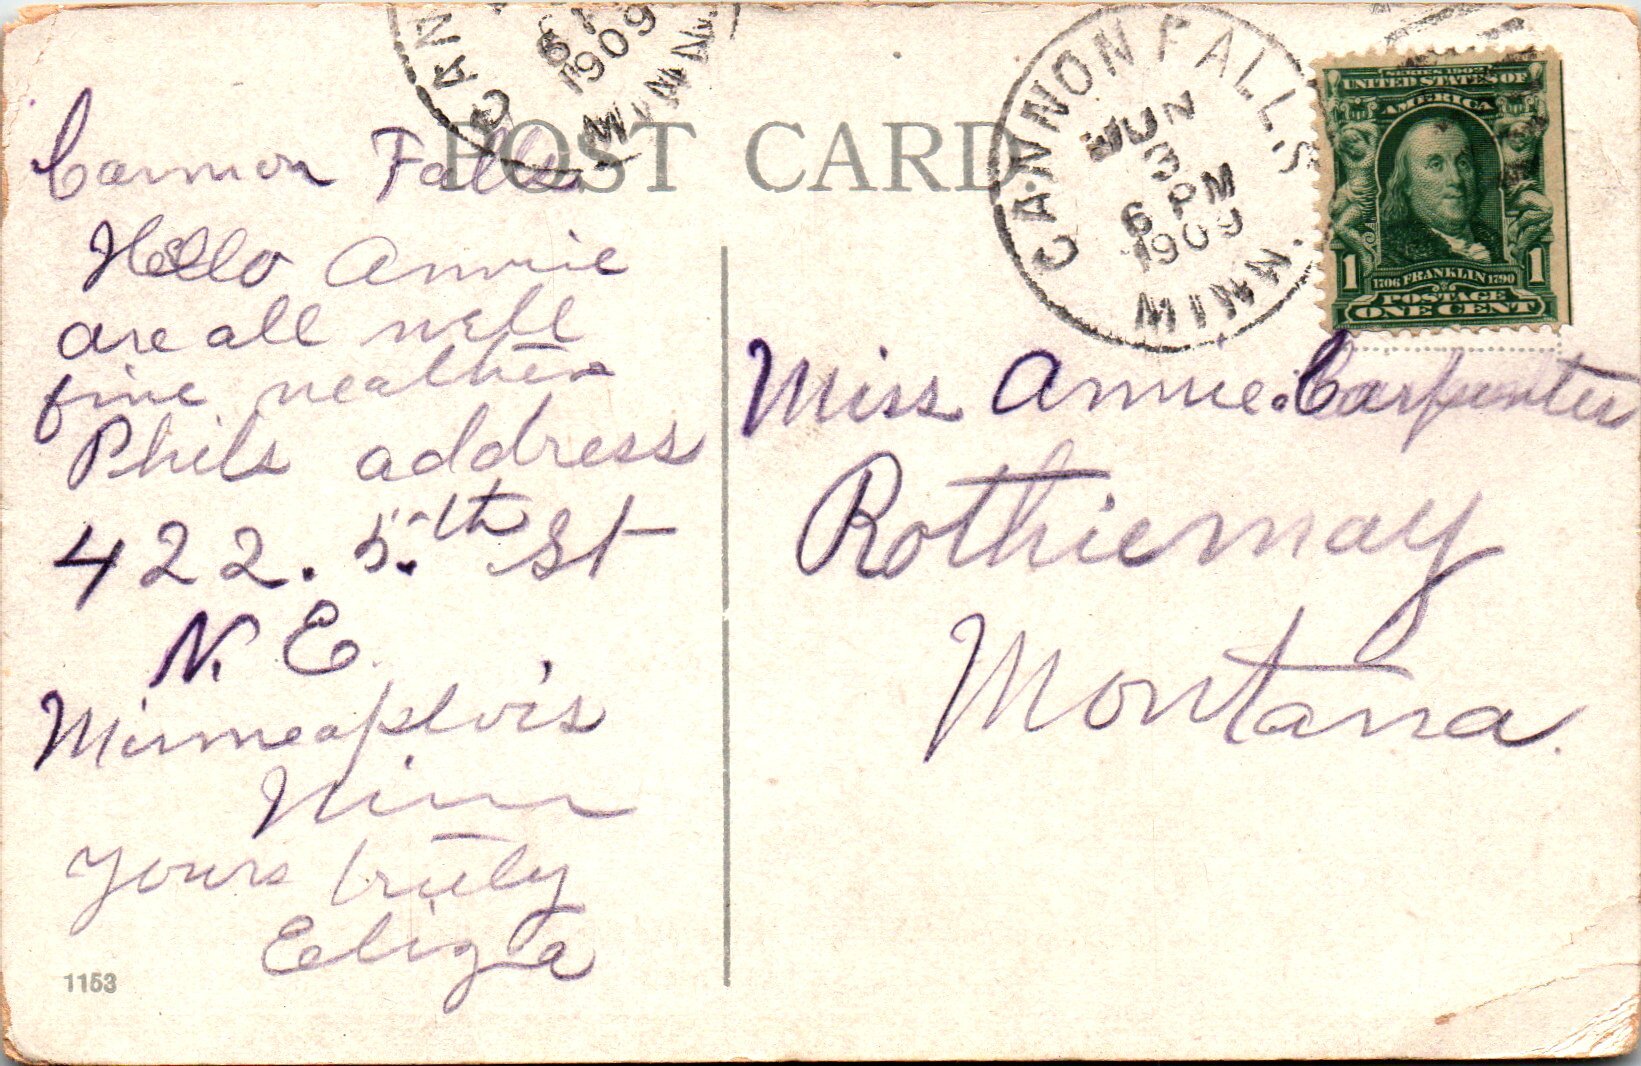 CAN
6 P
1909
MINN.
CANNON FALLS
JUN
3
6 PM
1909
MINN.
SERIES 1902
UNITED STATES OF
AMERICA
1 1
1706 FRANKLIN 1790
POSTAGE
ONE CENT
POST CARD
Cannon Falls
Hello Annie
are all well
fine weather
Phils address
422. 5.th St
N. E.
Minneaplois
Minn
yours truly
Eliza
1153
Miss Annie. Carpenter
Rothiemay
Montana.